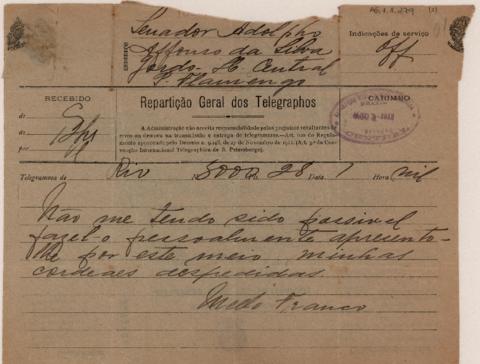 AG.1.1.279 (2)
Senador Adolpho
Affonso da Silva
Gordo - H. Central
P. Flamengo
ENDEREÇO
Indicações de serviço
Off
RECEBIDO
de
às
por
Repartição Geral dos Telegraphos
CARIMBO
A Administração não acceita responsabilidade pelos prejuizos resultantes de
erros ou demora na transmissão e entrega de telegrammas.—Art. do Regula-
mento approvado pelo Decreto n. de 27 de Novembro de (Art. 3º da Con-
venção Internacional Telegraphica de S. Petersburgo).
Telegramma de Rio N. 3000 P. 28 Data 1 Hora
Não me tendo sido possivel
fazel-o pessoalmente apresento-
lhe por este meio minhas
cordeaes despedidas
Mello Franco